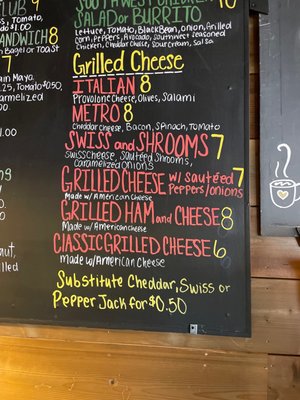 CLUB 9
, Tomato,
$1.00
SANDWICH 8
h Bagel or Toast
7
ain Maya,
.25, Tomato $0.50,
ramelized
.00
aut,
illed
SALAD or BURRITO
Lettuce, Tomato, Black Bean, Onion, Grilled
Corn, Peppers, Avocado, Southwest Seasoned
Chicken, Cheddar Cheese, Sour cream, Salsa
Grilled Cheese
ITALIAN 8
Provolone Cheese, Olives, Salami
METRO 8
Cheddar Cheese, Bacon, Spinach, Tomato
SWISS and SHROOMS 7
Swiss Cheese, Sautéed Shrooms,
Caramelized Onions
GRILLED CHEESE w/ Sautéed 7
Peppers/onions
Made w/ American Cheese
GRILLED HAM and CHEESE 8
Made w/ American Cheese
CLASSIC GRILLED CHEESE 6
Made w/ American Cheese
Substitute Cheddar, Swiss or
Pepper Jack for $0.50